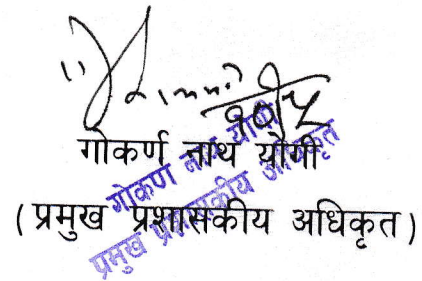 गोकर्ण नाथ योगी
(प्रमुख प्रशासकीय अधिकृत)
गोकर्ण नाथ योगी
प्रमुख प्रशासकीय अधिकृत